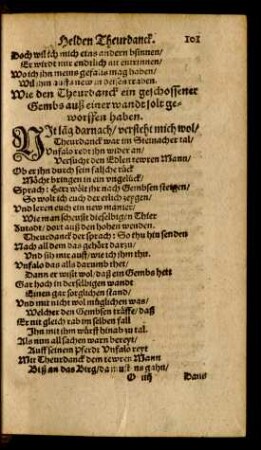 Helden Theurdanck. 101
Doch wil ich mich eins andern bsinnen/
Er wirdt mir endtlich nit entrinnen/
Wo ich jhn meins gefallns mag haben/
Wil jhm auffs new in
Wie den Theurdanck ein geschossener
Gembs auß einer wandt solt ge-
worffen haben.
NIt lāg darnach/ versteht mich wol/
Theurdanck war im Steinacher tal/
Vnfalo redt jhn wider an/
Versucht den Edlen tewren Mann/
Ob er jhn durch sein falsche tück
Möcht bringen in ein vnglück/
Sprach: Herr wölt jhr nach Gembsen steigen/
So wolt ich euch der etlich zeygen/
Vnd leren euch ein new manier/
Wie man scheust dieselbigen Thier
Zutodt/ dort auß den hohen wenden.
Theurdanck der sprach: So thu hin senden
Nach all dem das gehört darzu/
Vnd füh mir auff/ wie ich jhm thu.
Vnfalo das alls darumb thet/
Dann er wist wol/ daß ein Gembs hett
Gar hoch in derselbigen wandt
Einen gar sorglichen stand/
Vnd mit nicht wol müglichen was/
Welcher den Gembsen träffe/ daß
Er nit gleich rab im selben fall
Jhn mit jhm würff hinab zu tal.
Als nun all sachen warn bereyt/
Auff seinem Pferdt Vnfalo reyt
Mit Theurdanck dem tewren Mann
Biß an das Birg/ da must es gahn/
O iiij Dans